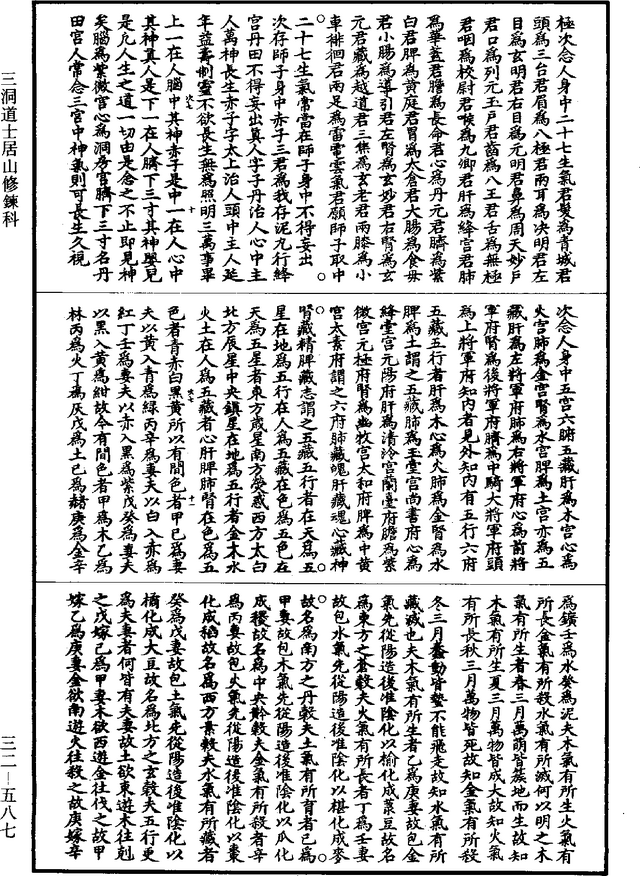 極次念人身中二十七生氣君髮為青城君
頭為三台君眉為八極君兩耳為決明君左
目為玄明君右目為元明君鼻為周天妙戶
君口為列元玉戶君齒為八王君舌為無極
君咽為校尉君喉為九卿君肝為絳宮君肺
為華蓋君膽為長命君心為丹元君臍為紫
白君脾為黃庭君胃為太倉君大腸為食母
君小腸為導引君左腎為玄妙君右腎為玄
元君藏為越道君三焦為玄老君兩膝為小
車徘徊君兩足為雷電雲氣君願師子取中
二十七生氣常當在師子身中不得妄出
次存師子身中赤子三君為我存泥丸行絳
宮丹田不得妄出真人字子丹治人心中主
人萬神長生赤子字太上治人頭中主人延
年益壽制靈不欲長生無為照明三萬事畢
上一在人腦中其神赤子是中一在人心中
其神真人是下一在人臍下三寸其神嬰兒
是凡人生之道一切由是念之不止即見神
矣腦為紫微宮心為洞房宮臍下三寸名丹
田宮人常念三宮中神氣則可長生久視
次念人身中五宮六腑五藏肝為木宮心為
火宮肺為金宮腎為水宮脾為土宮亦為五
藏肝為左將軍府肺為右將軍府心為前將
軍府腎為後將軍府臍為中騎大將軍府頭
為上將軍府知內者見外知內有五行六府
五藏五行者肝為木心為火肺為金腎為水
脾為土謂之五藏肺為玉堂宮尚書府心為
絳堂宮元陽府肝為清泠宮蘭臺府膽為紫
微宮元極府腎為幽牧宮太和府脾為中黃
宮太素府謂之六府肺藏魄肝藏魂心藏神
腎藏精脾藏志謂之五藏五行者在天為五
星在地為五行在人為五藏在色為五色在
天為五星者東方歲星南方熒惑西方太白
北方辰星中央鎮星在地為五行者金木水
火土在人為五藏者心肝脾肺腎在色為五
色者青赤白黑黃所以有間色者甲己為妻
夫以黃入青為綠丙辛為妻夫以白入赤為
紅丁壬為妻夫以赤入黑為紫戊癸為妻夫
以黑入黃為紺故令有間色者甲為木乙為
林丙為火丁為灰戊為土己為赭庚為金辛
為鑛壬為水癸為泥夫木氣有所生火氣有
所長金氣有所殺水氣有所滅何以明之木
氣有所生者春三月萬萌皆蔟地而生故知
木氣有所生夏三月萬物皆成大故知火氣
有所長秋三月萬物皆死故知金氣有所殺
冬三月蠢動皆蟄不能飛走故知水氣有所
藏滅也夫木氣有所生者乙為庚妻故包金
氣先從陽造後准陰化以榆化成菉豆故名
為東方之蒼穀夫火氣有所長者丁為壬妻
故包水氣先從陽造後准陰化以椹化成麥
故名為南方之丹穀夫土氣有所育者己為
甲妻故包木氣先從陽造後准陰化以瓜化
成稷故名為中央黅穀夫金氣有所殺者辛
為丙妻故包火氣先從陽造後准陰化以棗
化成稻故名為西方素穀夫水氣有所藏者
癸為戊妻故包土氣先從陽造後准陰化以
橘化成大豆故名為北方之玄穀夫五行更
為夫妻者何皆有夫妻故土欲東遊木往剋
之戊嫁己為甲妻木欲西遊金往伐之故甲
嫁乙為庚妻金欲南遊火往殺之故庚嫁辛
三洞道士居山修鍊科
三二—五八七